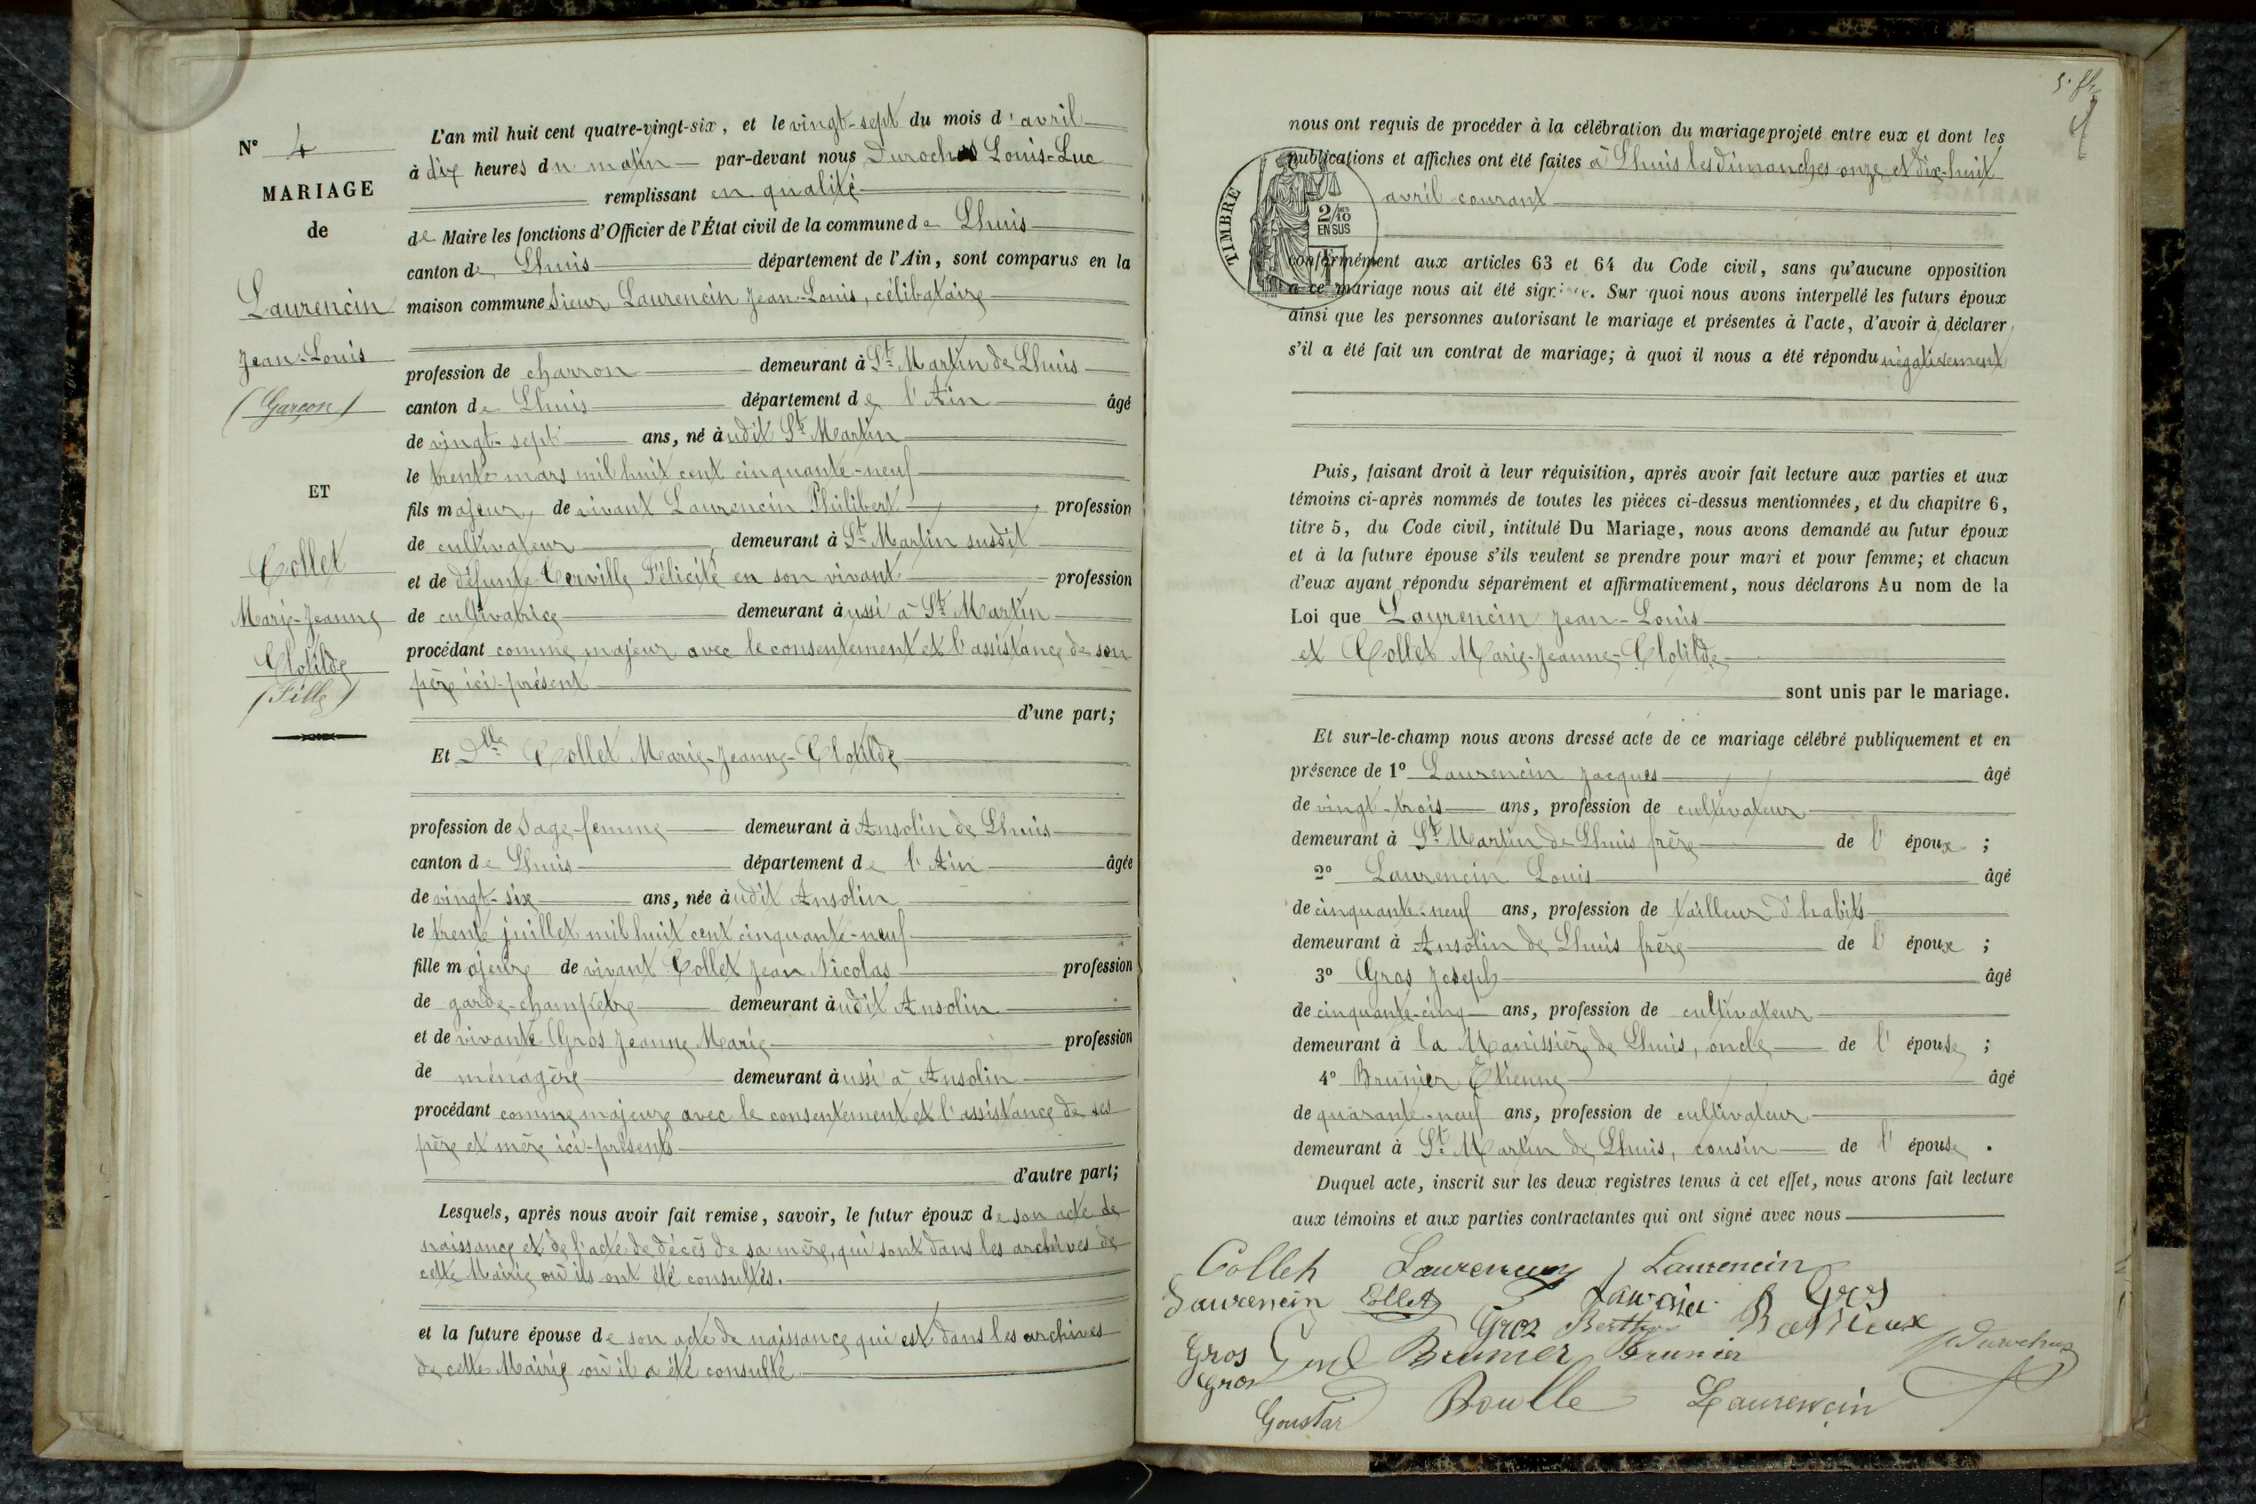 N° 4
MARIAGE
de
Laurencin
Jean-Louis
(Garçon)
ET
Collet
Marie-Jeanne
Clotilde
(Fille)
L'an mil huit cent quatre-vingt-six, et le vingt-sept du mois d'avril
à dix heures du matin par-devant nous Durochas Louis-Luc
remplissant en qualité
de Maire les fonctions d'Officier de l'État civil de la commune de Lhuis
canton de Lhuis département de l'Ain, sont comparus en la
maison commune Sieur Laurencin Jean-Louis, célibataire
profession de charron demeurant à St Martin de Lhuis
canton de Lhuis département de l'Ain âgé
de vingt-sept ans, né àudit St Martin
le trente mars mil huit cent cinquante-neuf
fils majeur, de vivant Laurencin Philibert profession
de cultivateur demeurant à St Martin susdit
et de défunte Cerville Félicité en son vivant profession
de cultivatrice demeurant àussi à St Martin
procédant comme majeur avec le consentement et l'assistance de son
père ici-présent
d'une part;
Et Dlle Collet Marie-Jeanne-Clotilde
profession de Sage-femme demeurant à Ansolin de Lhuis
canton de Lhuis département de l'Ain âgée
de vingt-six ans, née àudit Ansolin
le trente juillet mil huit cent cinquante-neuf
fille majeure de vivant Collet Jean Nicolas profession
de garde-champêtre demeurant àudit Ansolin
et de vivante Gros Jeanne Marie profession
de ménagère demeurant àussi à Ansolin
procédant comme majeure avec le consentement et l'assistance de ses
père et mère ici-présents
d'autre part;
Lesquels, après nous avoir fait remise, savoir, le futur époux de son acte de
naissance et de l'acte de décès de sa mère, qui sont dans les archives de
cette Mairie où ils ont été consultés.
et la future épouse de son acte de naissance qui est dans les archives
de cette Mairie où il a été consulté
nous ont requis de procéder à la célébration du mariage projeté entre eux et dont les
publications et affiches ont été faites à Lhuis les dimanches onze et dix-huit
avril courant
TIMBRE
2/10
EN SUS
conformément aux articles 63 et 64 du Code civil, sans qu'aucune opposition
à ce mariage nous ait été signifiée. Sur quoi nous avons interpellé les futurs époux
ainsi que les personnes autorisant le mariage et présentes à l'acte, d'avoir à déclarer
s'il a été fait un contrat de mariage; à quoi il nous a été répondu négativement
Puis, faisant droit à leur réquisition, après avoir fait lecture aux parties et aux
témoins ci-après nommés de toutes les pièces ci-dessus mentionnées, et du chapitre 6,
titre 5, du Code civil, intitulé Du Mariage, nous avons demandé au futur époux
et à la future épouse s'ils veulent se prendre pour mari et pour femme; et chacun
d'eux ayant répondu séparément et affirmativement, nous déclarons Au nom de la
Loi que Laurencin Jean-Louis
et Collet Marie-Jeanne-Clotilde
sont unis par le mariage.
Et sur-le-champ nous avons dressé acte de ce mariage célébré publiquement et en
présence de 1° Laurencin Jacques âgé
de vingt-trois ans, profession de cultivateur
demeurant à St Martin de Lhuis frère de l'époux ;
2° Laurencin Louis âgé
de cinquante-neuf ans, profession de tailleur d'habits
demeurant à Ansolin de Lhuis frère de l'époux ;
3° Gros Joseph âgé
de cinquante-cinq ans, profession de cultivateur
demeurant à la Manissière de Lhuis, oncle de l'épouse ;
4° Brunier Etienne âgé
de quarante-neuf ans, profession de cultivateur
demeurant à St Martin de Lhuis, cousin de l'épouse .
Duquel acte, inscrit sur les deux registres tenus à cet effet, nous avons fait lecture
aux témoins et aux parties contractantes qui ont signé avec nous
Collet Laurencin J Laurencin
Laurencin Collet Gros
Groz Berthe
Gros Brunier Brunier
gros
Goustar Boulle Laurencin